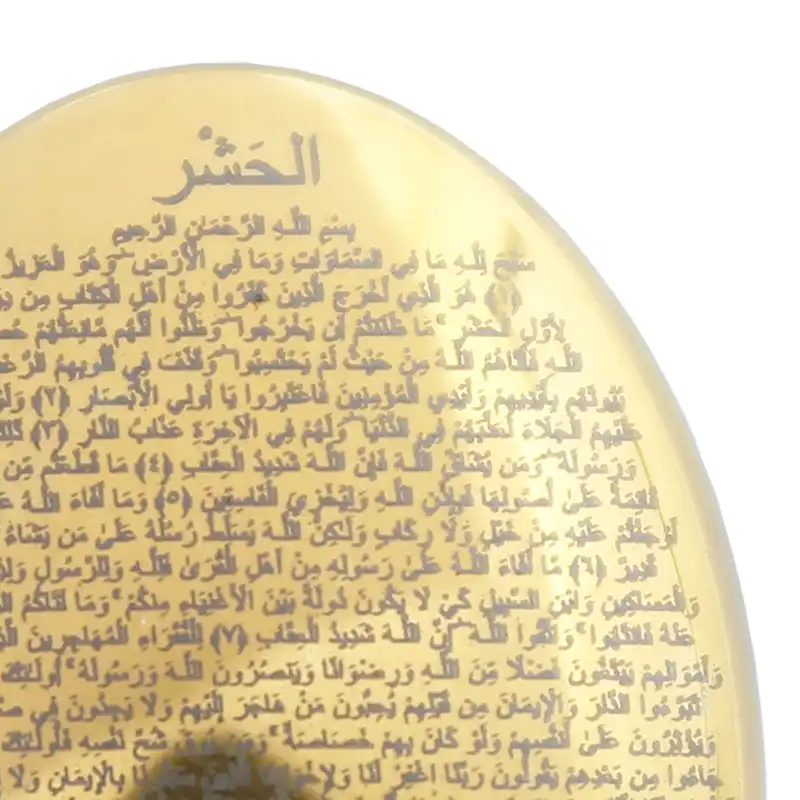 الحَشْر
بِسْمِ اللَّهِ الرَّحْمَٰنِ الرَّحِيمِ
سَبَّحَ لِلَّهِ مَا فِي السَّمَاوَاتِ وَمَا فِي الْأَرْضِ ۖ وَهُوَ الْعَزِيزُ
(١) هُوَ الَّذِي أَخْرَجَ الَّذِينَ كَفَرُوا مِنْ أَهْلِ الْكِتَابِ مِن
لِأَوَّلِ الْحَشْرِ ۚ مَا ظَنَنتُمْ أَن يَخْرُجُوا ۖ وَظَنُّوا أَنَّهُم مَّانِعَتُهُمْ
اللَّهِ فَأَتَاهُمُ اللَّهُ مِنْ حَيْثُ لَمْ يَحْتَسِبُوا ۖ وَقَذَفَ فِي قُلُوبِهِمُ
بُيُوتَهُم بِأَيْدِيهِمْ وَأَيْدِي الْمُؤْمِنِينَ فَاعْتَبِرُوا يَا أُولِي الْأَبْصَارِ (٢)
عَلَيْهِمُ الْجَلَاءَ لَعَذَّبَهُمْ فِي الدُّنْيَا ۖ وَلَهُمْ فِي الْآخِرَةِ عَذَابُ النَّارِ (٣)
وَرَسُولَهُ ۖ وَمَن يُشَاقِّ اللَّهَ فَإِنَّ اللَّهَ شَدِيدُ الْعِقَابِ (٤) مَا قَطَعْتُم مِّن
قَائِمَةً عَلَىٰ أُصُولِهَا فَبِإِذْنِ اللَّهِ وَلِيُخْزِيَ الْفَاسِقِينَ (٥) وَمَا أَفَاءَ اللَّهُ
أَوْجَفْتُمْ عَلَيْهِ مِنْ خَيْلٍ وَلَا رِكَابٍ وَلَٰكِنَّ اللَّهَ يُسَلِّطُ رُسُلَهُ عَلَىٰ مَن يَشَاءُ
قَدِيرٌ (٦) مَّا أَفَاءَ اللَّهُ عَلَىٰ رَسُولِهِ مِنْ أَهْلِ الْقُرَىٰ فَلِلَّهِ وَلِلرَّسُولِ
وَالْمَسَاكِينِ وَابْنِ السَّبِيلِ كَيْ لَا يَكُونَ دُولَةً بَيْنَ الْأَغْنِيَاءِ مِنكُمْ ۚ وَمَا آتَاكُمُ
عَنْهُ فَانتَهُوا ۚ وَاتَّقُوا اللَّهَ ۖ إِنَّ اللَّهَ شَدِيدُ الْعِقَابِ (٧) لِلْفُقَرَاءِ الْمُهَاجِرِينَ
وَأَمْوَالِهِمْ يَبْتَغُونَ فَضْلًا مِّنَ اللَّهِ وَرِضْوَانًا وَيَنصُرُونَ اللَّهَ وَرَسُولَهُ ۚ أُولَٰئِكَ
تَبَوَّءُوا الدَّارَ وَالْإِيمَانَ مِن قَبْلِهِمْ يُحِبُّونَ مَنْ هَاجَرَ إِلَيْهِمْ وَلَا يَجِدُونَ فِي
وَيُؤْثِرُونَ عَلَىٰ أَنفُسِهِمْ وَلَوْ كَانَ بِهِمْ خَصَاصَةٌ ۚ وَمَن يُوقَ شُحَّ نَفْسِهِ فَأُولَٰئِكَ
جَاءُوا مِن بَعْدِهِمْ يَقُولُونَ رَبَّنَا اغْفِرْ لَنَا وَلِإِخْوَانِنَا بِالْإِيمَانِ وَلَا